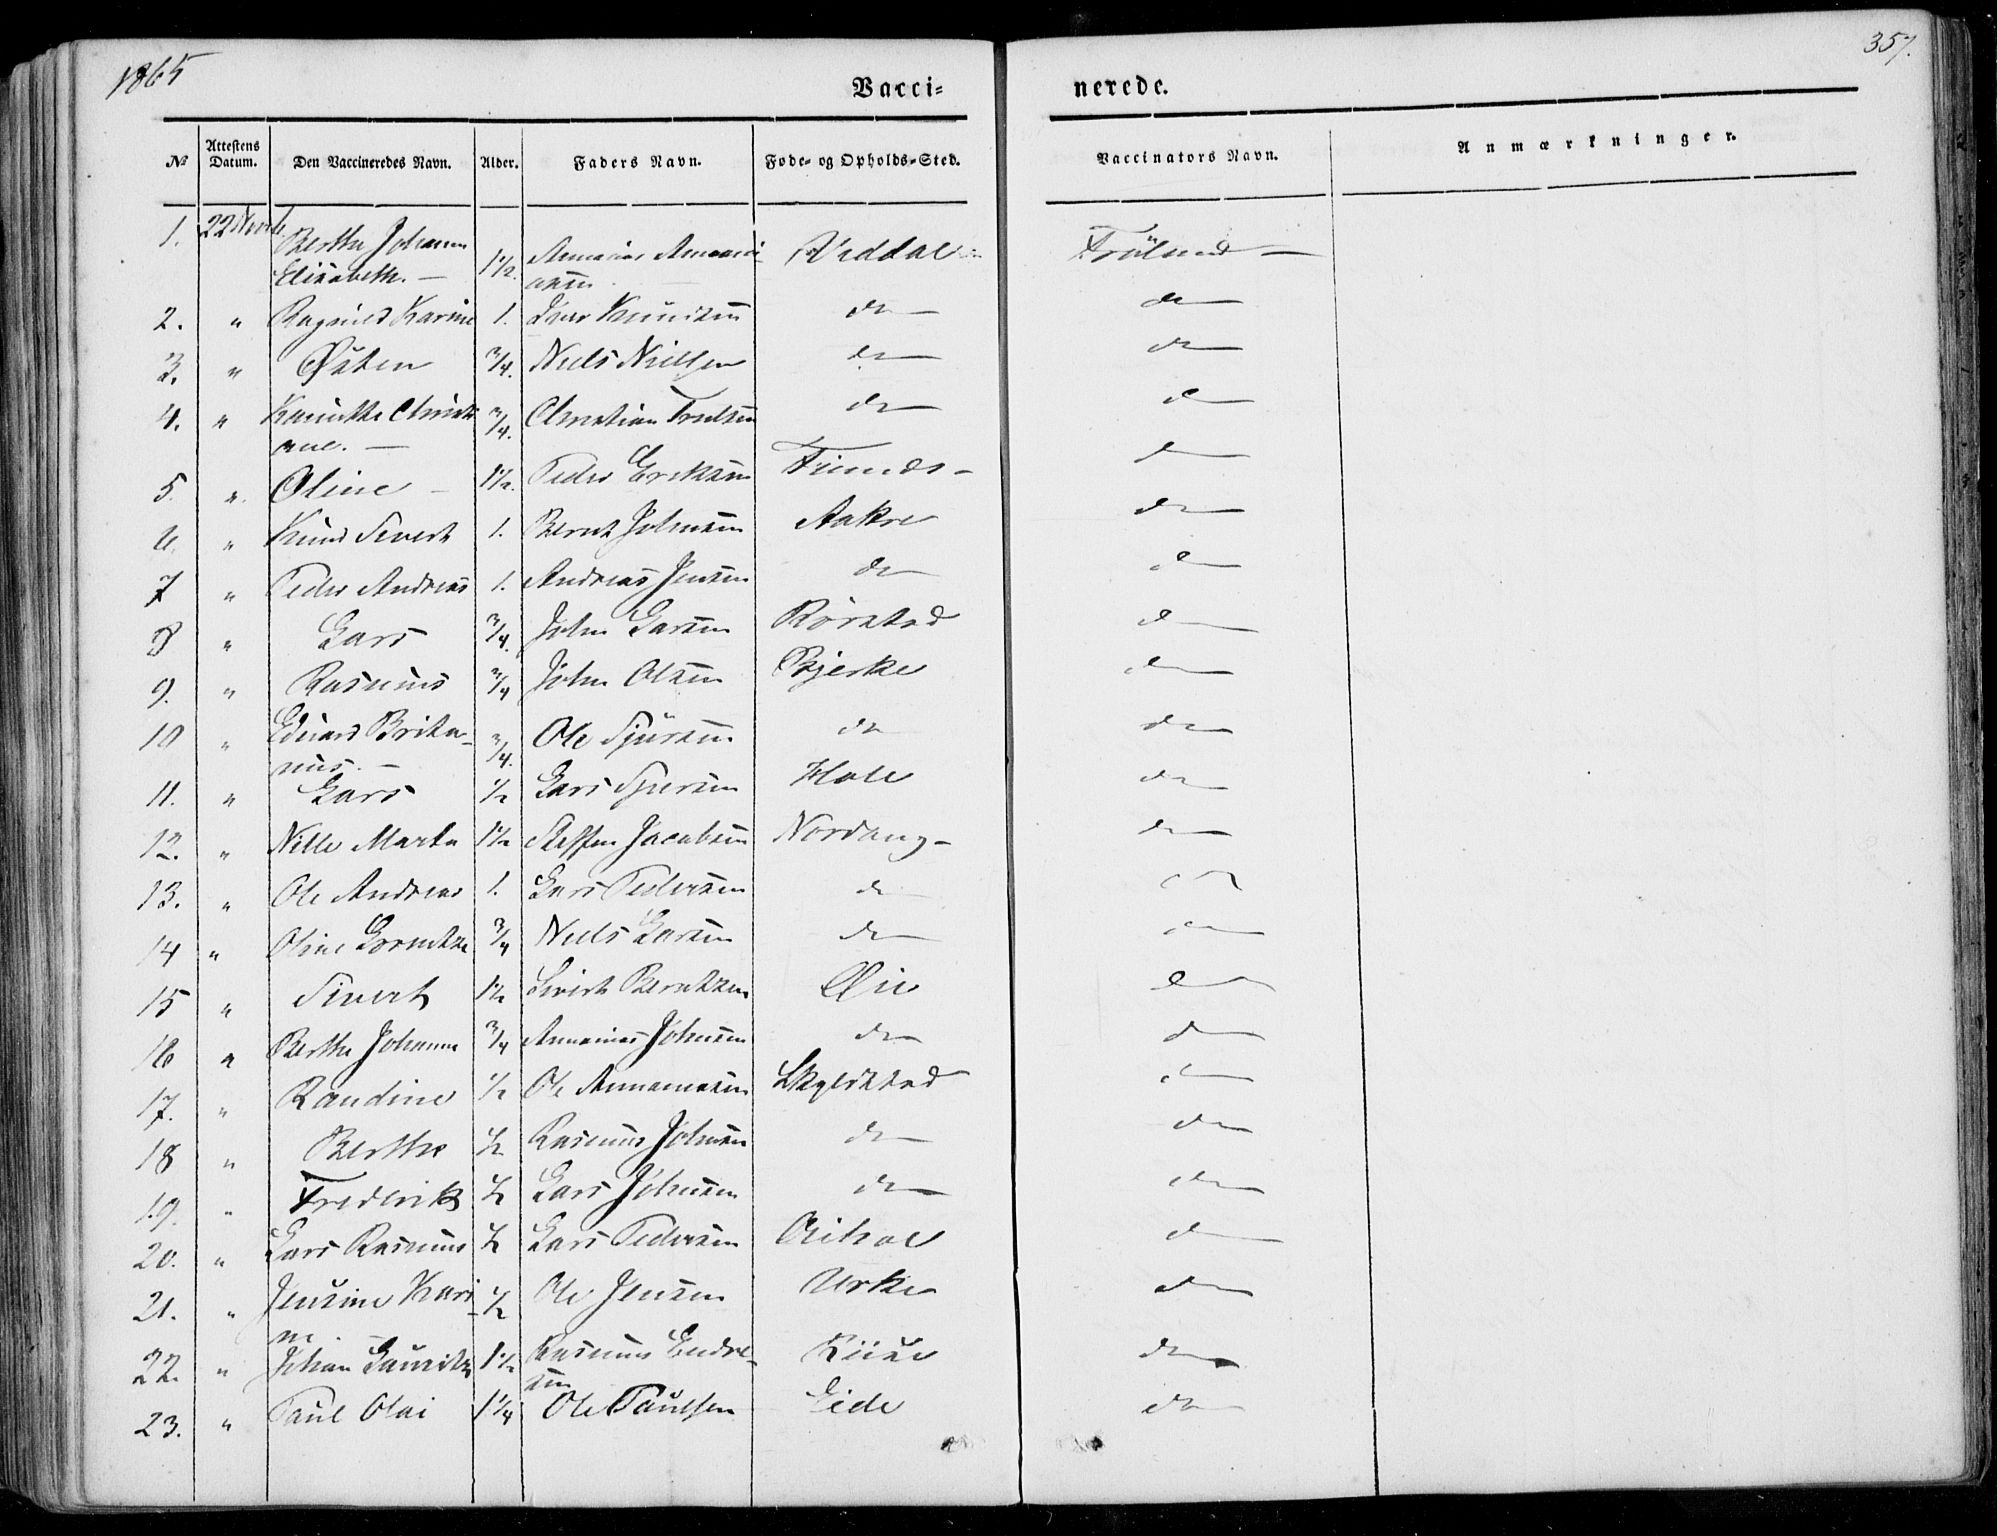 1865
357.
Vacci-
nerede.
No Attestens Datum. Den Vaccineredes Navn. Alder. Faders Navn. Føde- og Opholds-Sted. Vaccinators Navn. Anmærkninger.
1. 22 Novb. Berthe Johanne 1 1/2. Viddal
Elisabeth. —
2. " Ragnild Karine 1. Iver Knudsen do do
3. " Østen 3/4. Niels Nielsen do do
4. " 3/4. Christian do do
5. " Oline 1 1/2. Peder Eriksen do
6. " Knud Sivert 1. Bernt Johnsen Aakre do
7 " Peder Andreas 1. Andreas Jensen do do
8 " Lars 3/4. John Larsen Rørstad do
9. " Rasmus 3/4 John Olsen Bjerke do
10 " Eduard Brita- 3/4. Ole Sjursen do do
nus. —
11. " Lars 1/2 Lars Sjursen Hole do
12. " Nille Marta 1 1/2 Steffen Jacobsen Nordang- do
13. " Ole Andreas 1. Lars Pedersen do do
14 " Oline Lorentze 3/4 Niels Larsen do do
15 " Sivert 1 1/2 Sivert Berntsen Øie do
16 " Berthe Johanne 3/4 Annanias Johnsen do do
17. " Randine 1/2 Ole Annaniasen Skylstad do
18 " Berthe 1/2 Rasmus Johnsen do do
19. " Frederik 1/2 Lars Johnsen do do
20. " Lars Rasmus 1/2 Lars Pedersen do
21. " Jensine Kari- 1/2 Ole Jensen Urke do
ne
22. " Johan Lauritz 1 1/2 Rasmus Endre- do
sen
23. " Paul Olai 1 1/4 Ole Paulsen Eide do